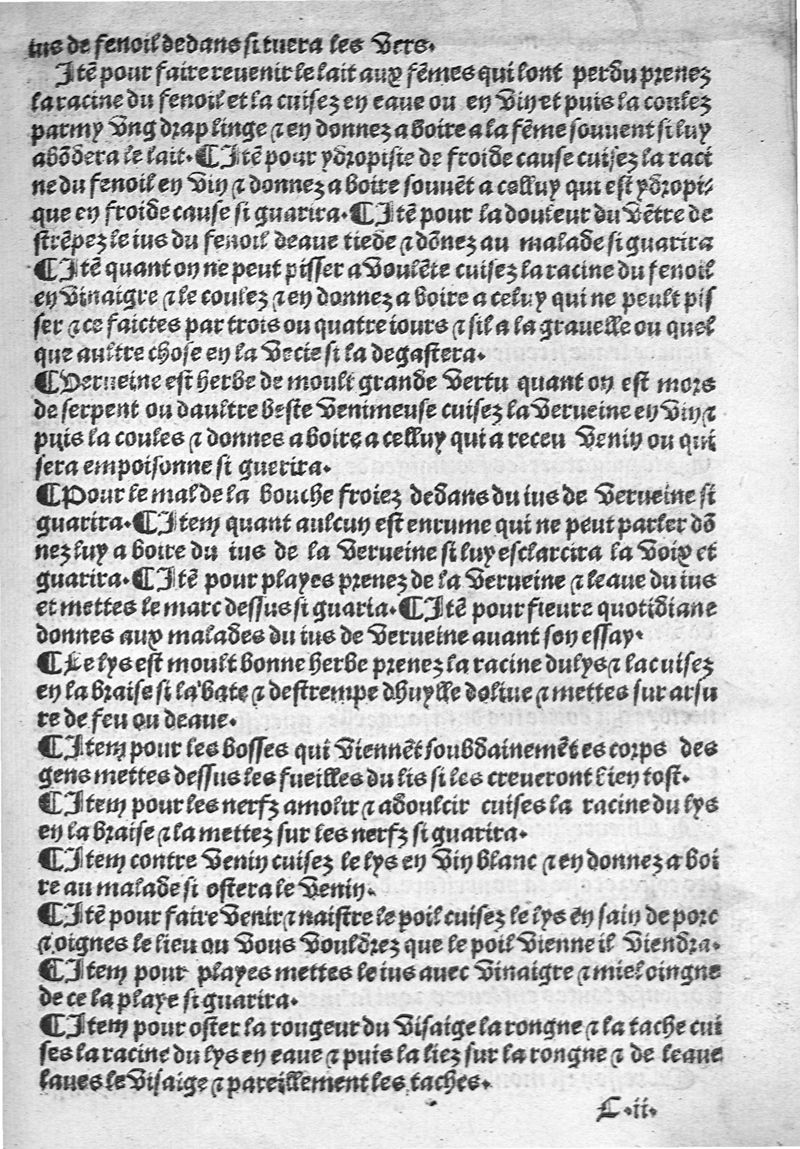 ius de fenoil dedans si tuera les vers.
Itē pour faire reuenir le lait aux fēmes qui lont perdu prenez
la racine du fenoil et la cuisez en eaue ou en vin et puis la coulez
parmy vng drap linge ⁊ en donnez a boire a la fēme souuent si luy
abōdera le lait. ¶ Itē pour ydropisie de froide cause cuisez la raci
ne du fenoil en vin ⁊ donnez a boire souuēt a celluy qui est ydropi⸗
que en froide cause si guarira. ¶ Itē pour la douleur du vētre de
strēpez le ius du fenoil deaue tiede ⁊ dōnez au malade si guarira
¶ Itē quant on ne peut pisser a voulēte cuisez la racine du fenoil
en vinaigre ⁊ le coulez ⁊ en donnez a boire a celuy qui ne peult pis
ser ⁊ ce faictes par trois ou quatre iours ⁊ sil a la grauelle ou quel
que aultre chose en la vecie si la degastera.
¶ Verueine est herbe de moult grande vertu quant on est mors
de serpent ou daultre beste venimeuse cuisez la verueine en vin ⁊
puis la coules ⁊ donnes a boire a celluy qui a receu venin ou qui
sera empoisonne si guerira.
¶ Pour le mal de la bouche froiez dedans du ius de verueine si
guarira. ¶ Item quant aulcun est enrume qui ne peut parler dō
nez luy a boire du ius de la verueine si luy esclarcira la voix et
guarira. ¶ Itē pour playes prenez de la verueine ⁊ leaue du ius
et mettes le marc dessus si guaria. ¶ Itē pour fieure quotidiane
donnes aux malades du ius de verueine auant son essay.
¶ Le lys est moult bonne herbe prenez la racine du lys ⁊ la cuisez
en la braise si la bate ⁊ destrempe dhuylle doliue ⁊ mettes sur arsu
re de feu ou deaue.
¶ Item pour les bosses qui viennēt soubdainemēt es corps des
gens mettes dessus les fueilles du lis si les creueront bien tost.
¶ Item pour les nerfz amolir ⁊ adoulcir cuises la racine du lys
en la braise ⁊ la mettez sur les nerfz si guarira.
¶ Item contre venin cuisez le lys en vin blanc ⁊ en donnez a boi
re au malade si ostera le venin.
¶ Itē pour faire venir ⁊ naistre le poil cuisez le lys en sain de porc
⁊ oignes le lieu ou vous vouldrez que le poil vienne il viendra.
¶ Item pour playes mettes le ius auec vinaigre ⁊ miel oingne
de ce la playe si guarira.
¶ Item pour oster la rougeur du visaige la rongne ⁊ la tache cui
ses la racine du lys en eaue ⁊ puis la liez sur la rongne ⁊ de leaue
laues le visaige ⁊ pareillement les taches.
C.ii.